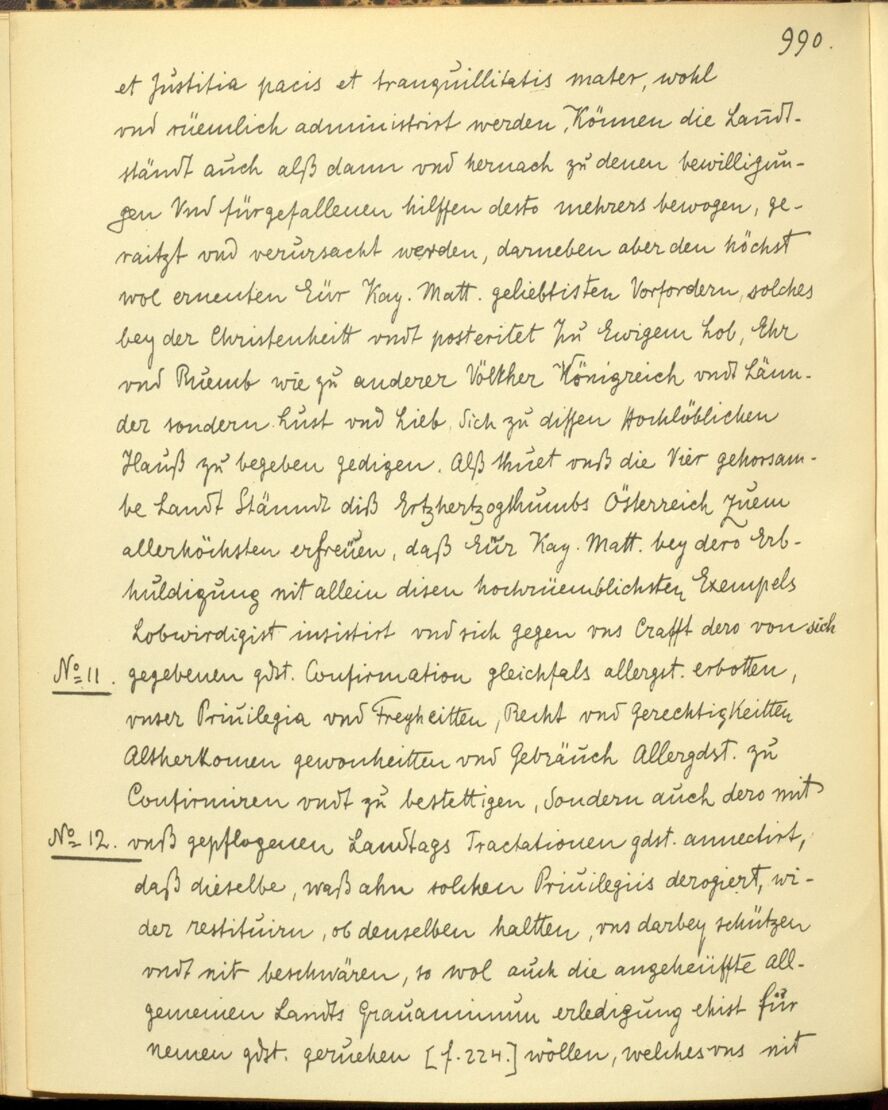 990.
et Justitia pacis et tranquillitatis mater, wohl
vnd rüemlich administrirt werden, Können die Landt-
ständt auch alß dann vnd hernach zu denen bewilligun-
gen Vnd fürgefallenen hilffen desto mehrers bewogen, ge-
raitzt vnd verursacht werden, darneben aber den höchst
wol ernenten Eür Kay. Matt. geliebtisten Vorfordern, solches
bey der Christenheitt vndt posteritet Zu Ewigem Lob, Ehr
vnd Ruemb wie zu anderer Völkher Königreich vndt Länn-
der sondern Lust vnd Lieb, Sich zu dissen Hochlöblichen
Hauß zu begeben gedigen. Alß thuet vnß die Vier gehorsam-
be Landt Stänndt diß Ertzhertzogthumbs Österreich Zuem
allerhöchsten erfreüen, daß Eür Kay. Matt. bey dero Erb-
huldigung nit allein disen hochrüemblichsten Exempels
Lobwirdigist insistirt vnd sich gegen vns Crafft dero von sich
No 11. gegebenen gdst. Confirmation gleichfals allergst. erbotten,
vnser Priuilegia vnd Freyheitten, Recht vnd Gerechtigkeitten
Altherkomen gewonheitten vnd Gebräuch Allergdst. zu
Confirmiren vndt zu bestettigen, Sondern auch dero mit
No 12. vnß gepflogenen Landtags Tractationen gdst. annectirt,
daß dieselbe, waß ahn solchen Priuilegiis derogiert, wi-
der restituirn, ob denselben haltten, vns darbey schützen
vndt nit beschwären, so wol auch die angeheüffte all-
gemeinen Landts Grauaminum erledigung ehist für
nemen gdst. geruehen [f. 224.] wöllen, welches vns nit